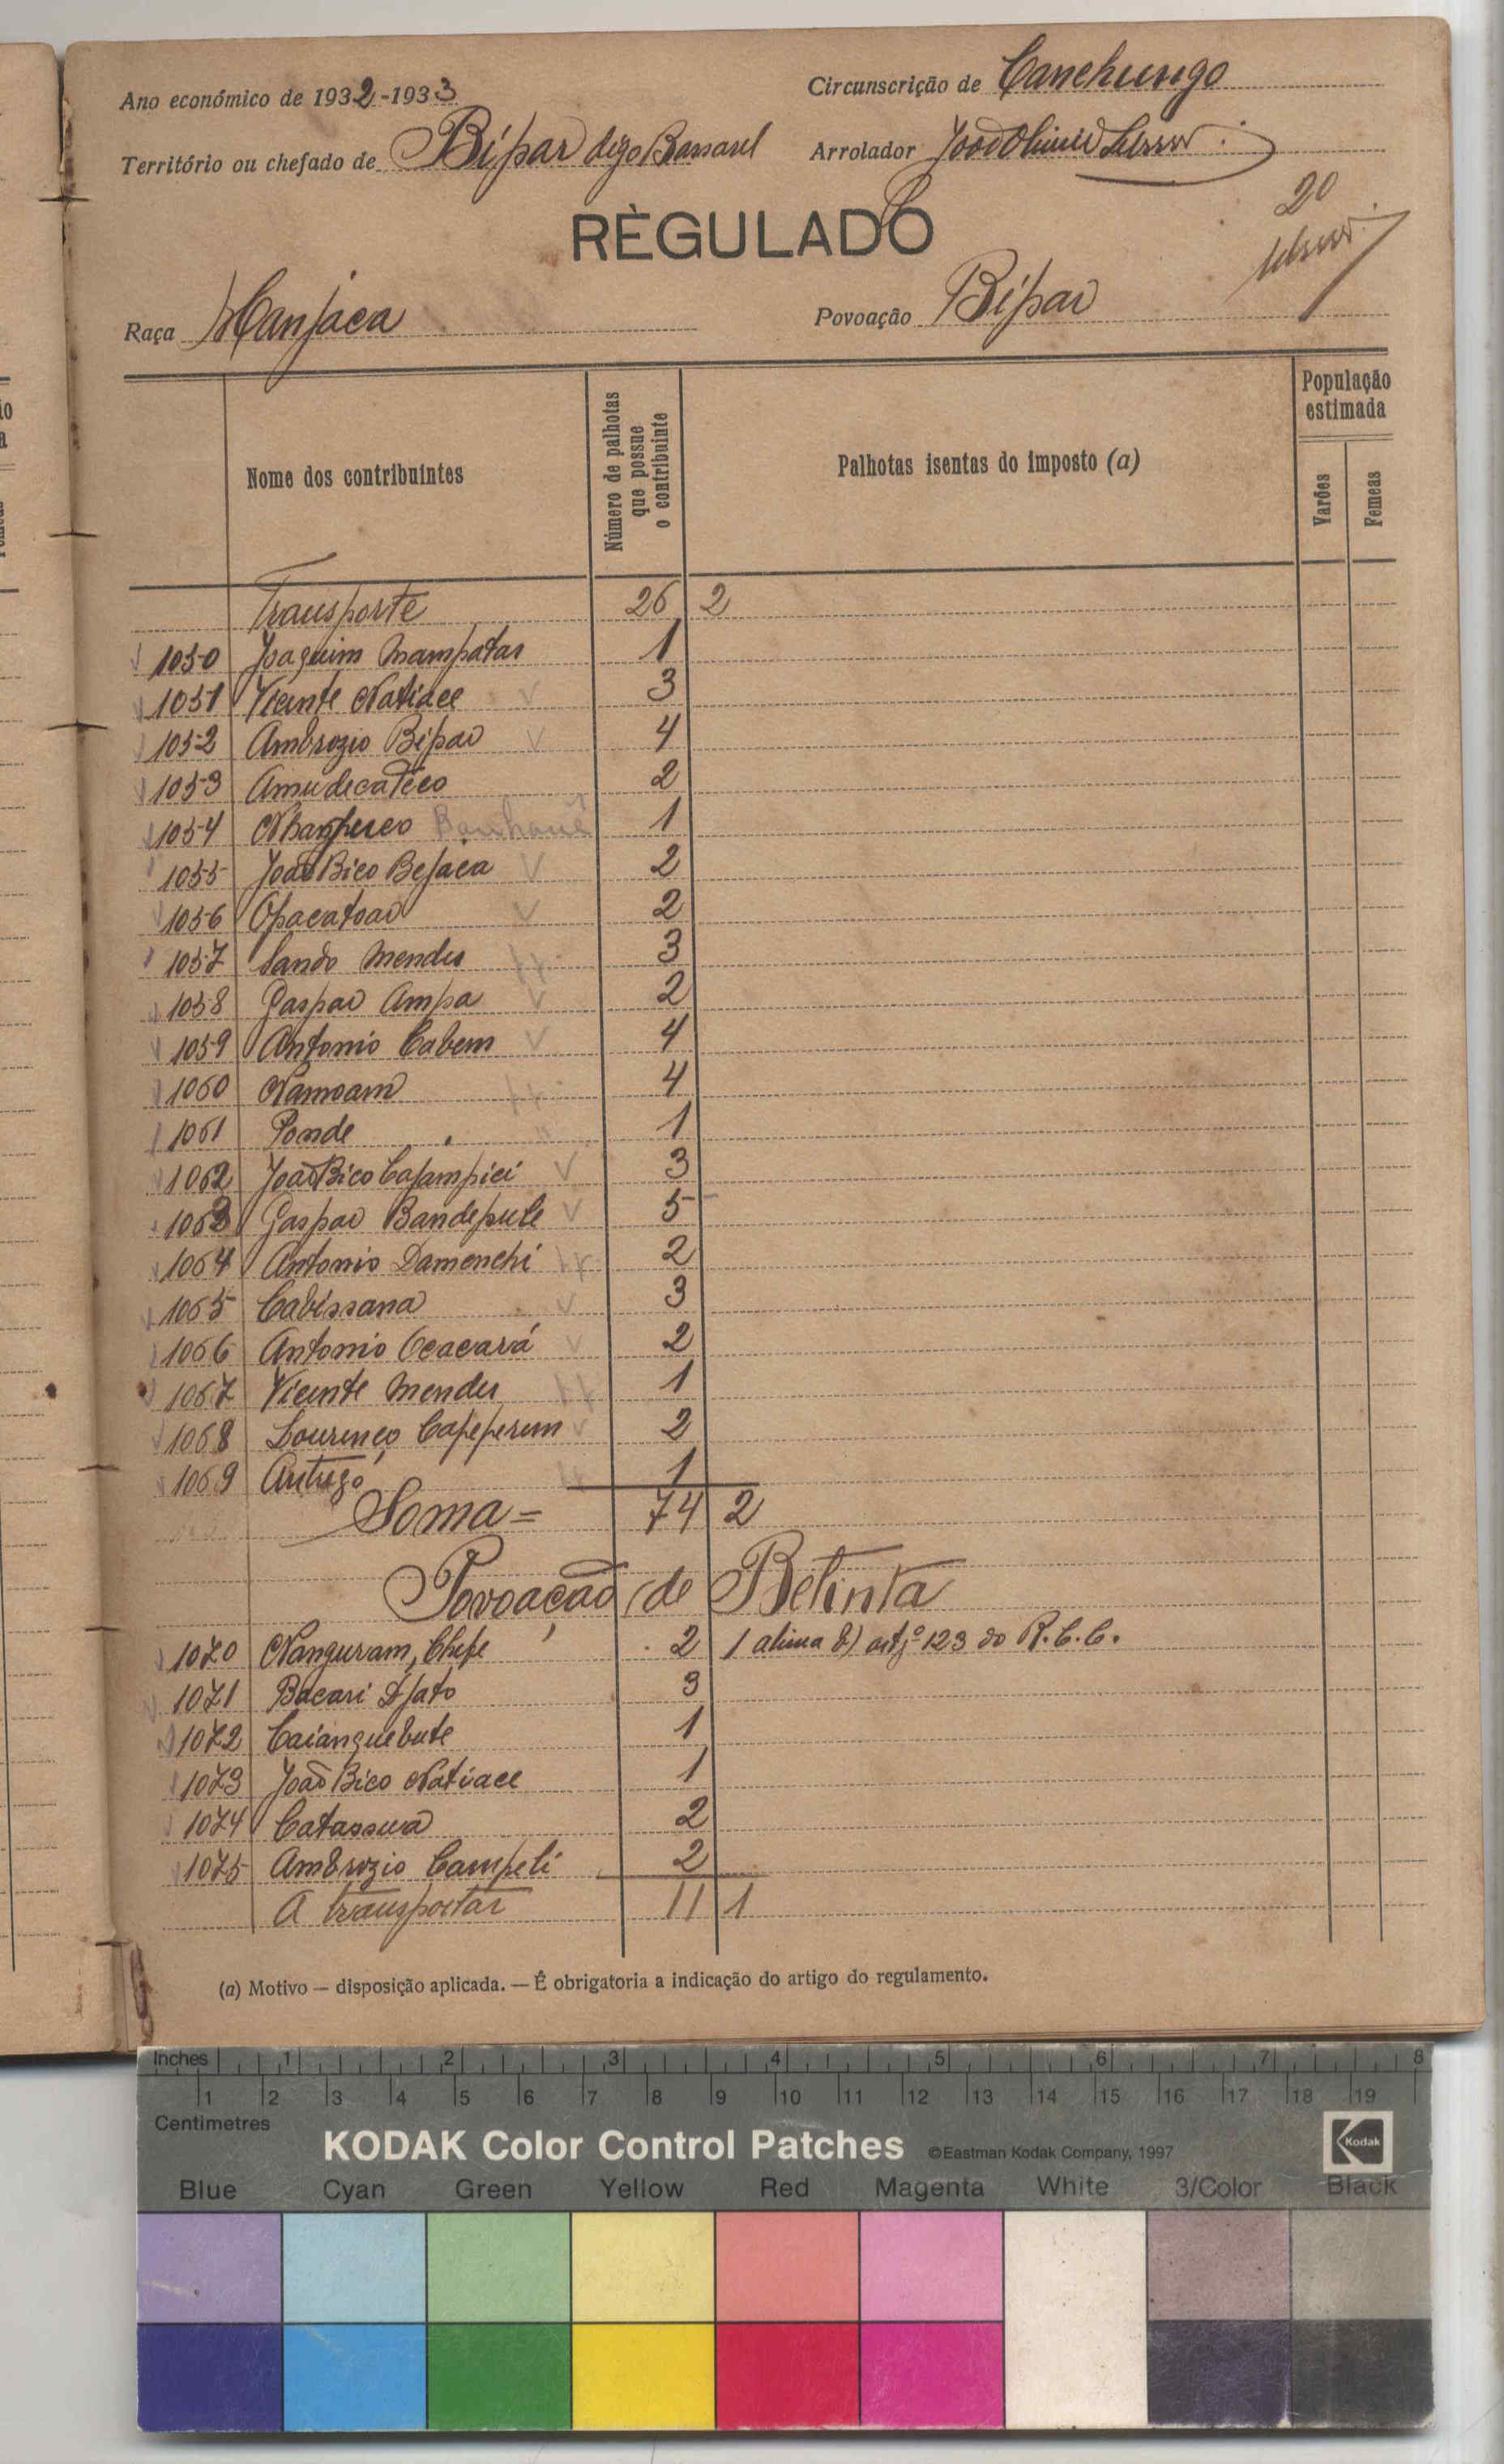 Ano económico de 1932-1933
Circunscrição de Canchungo
Território ou chefado de Bípar digo Bassarel
Arrolador João
RÈGULADO
20
Raça Manjaca
Povoação Bípar
Nome dos contribuintes
Número de palhotas que possue o contribuinte
Palhotas isentas do imposto (a)
População estimada
Varões
Femeas
Transporte 26 2
1050 Joaquim Mampatas 1
1051 Vicente Natiace 3
1052 Ambrozio Bipar 4
1053 Amudecatico 2
1054 1
1055 João Bico Bejaca 2
1056 Opacatoar 2
1057 Sando Mendes 3
1058 Gaspar Ampa 2
1059 Antonio Cabem 4
1060 Namoam 4
1061 Ponde 1
1062 João Bico Cajampici 3
1063 Gaspar Bandepule 5
1064 Antonio Damenchi 2
1065 Cabissana 3
1066 Antonio Ocacará 2
1067 Vicente Mendes 1
1068 Lourenço Capeperem 2
1069 1
Soma = 74 2
Povoação de Betinta
1070 Nanguram, Chefe 2 1 alinea b) artgº 123 do R.C.C.
1071 Bacari Djato 3
1072 Caianguebute 1
1073 João Bico Natiace 1
1074 Catassua 2
1075 Ambrozio Campeli 2
A transportar 11 1
(a) Motivo — disposição aplicada. — É obrigatoria a indicação do artigo do regulamento.
Inches 1 2 3 4 5 6 7 8
1 2 3 4 5 6 7 8 9 10 11 12 13 14 15 16 17 18 19
Centimetres
KODAK Color Control Patches ©Eastman Kodak Company, 1997 Kodak
Blue Cyan Green Yellow Red Magenta White 3/Color Black